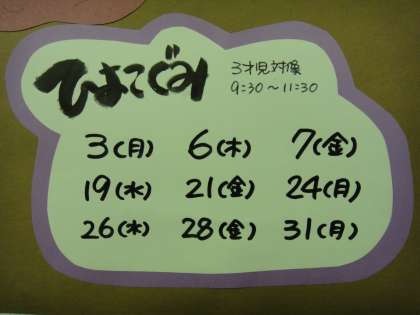 ひよこぐみ
3才児対象
9:30～11:30
3(月) 6(木) 7(金)
19(水) 21(金) 24(月)
26(水) 28(金) 31(月)